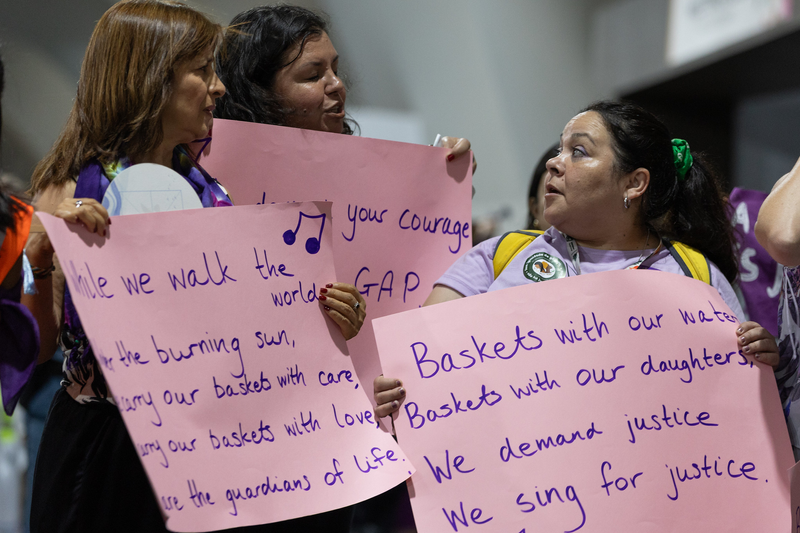 your courage
GAP
while we walk the
world
the burning sun,
carry our baskets with care,
carry our baskets with love
are the guardians of life.
Baskets with our water
Baskets with our daughters,
We demand justice
We sing for justice.